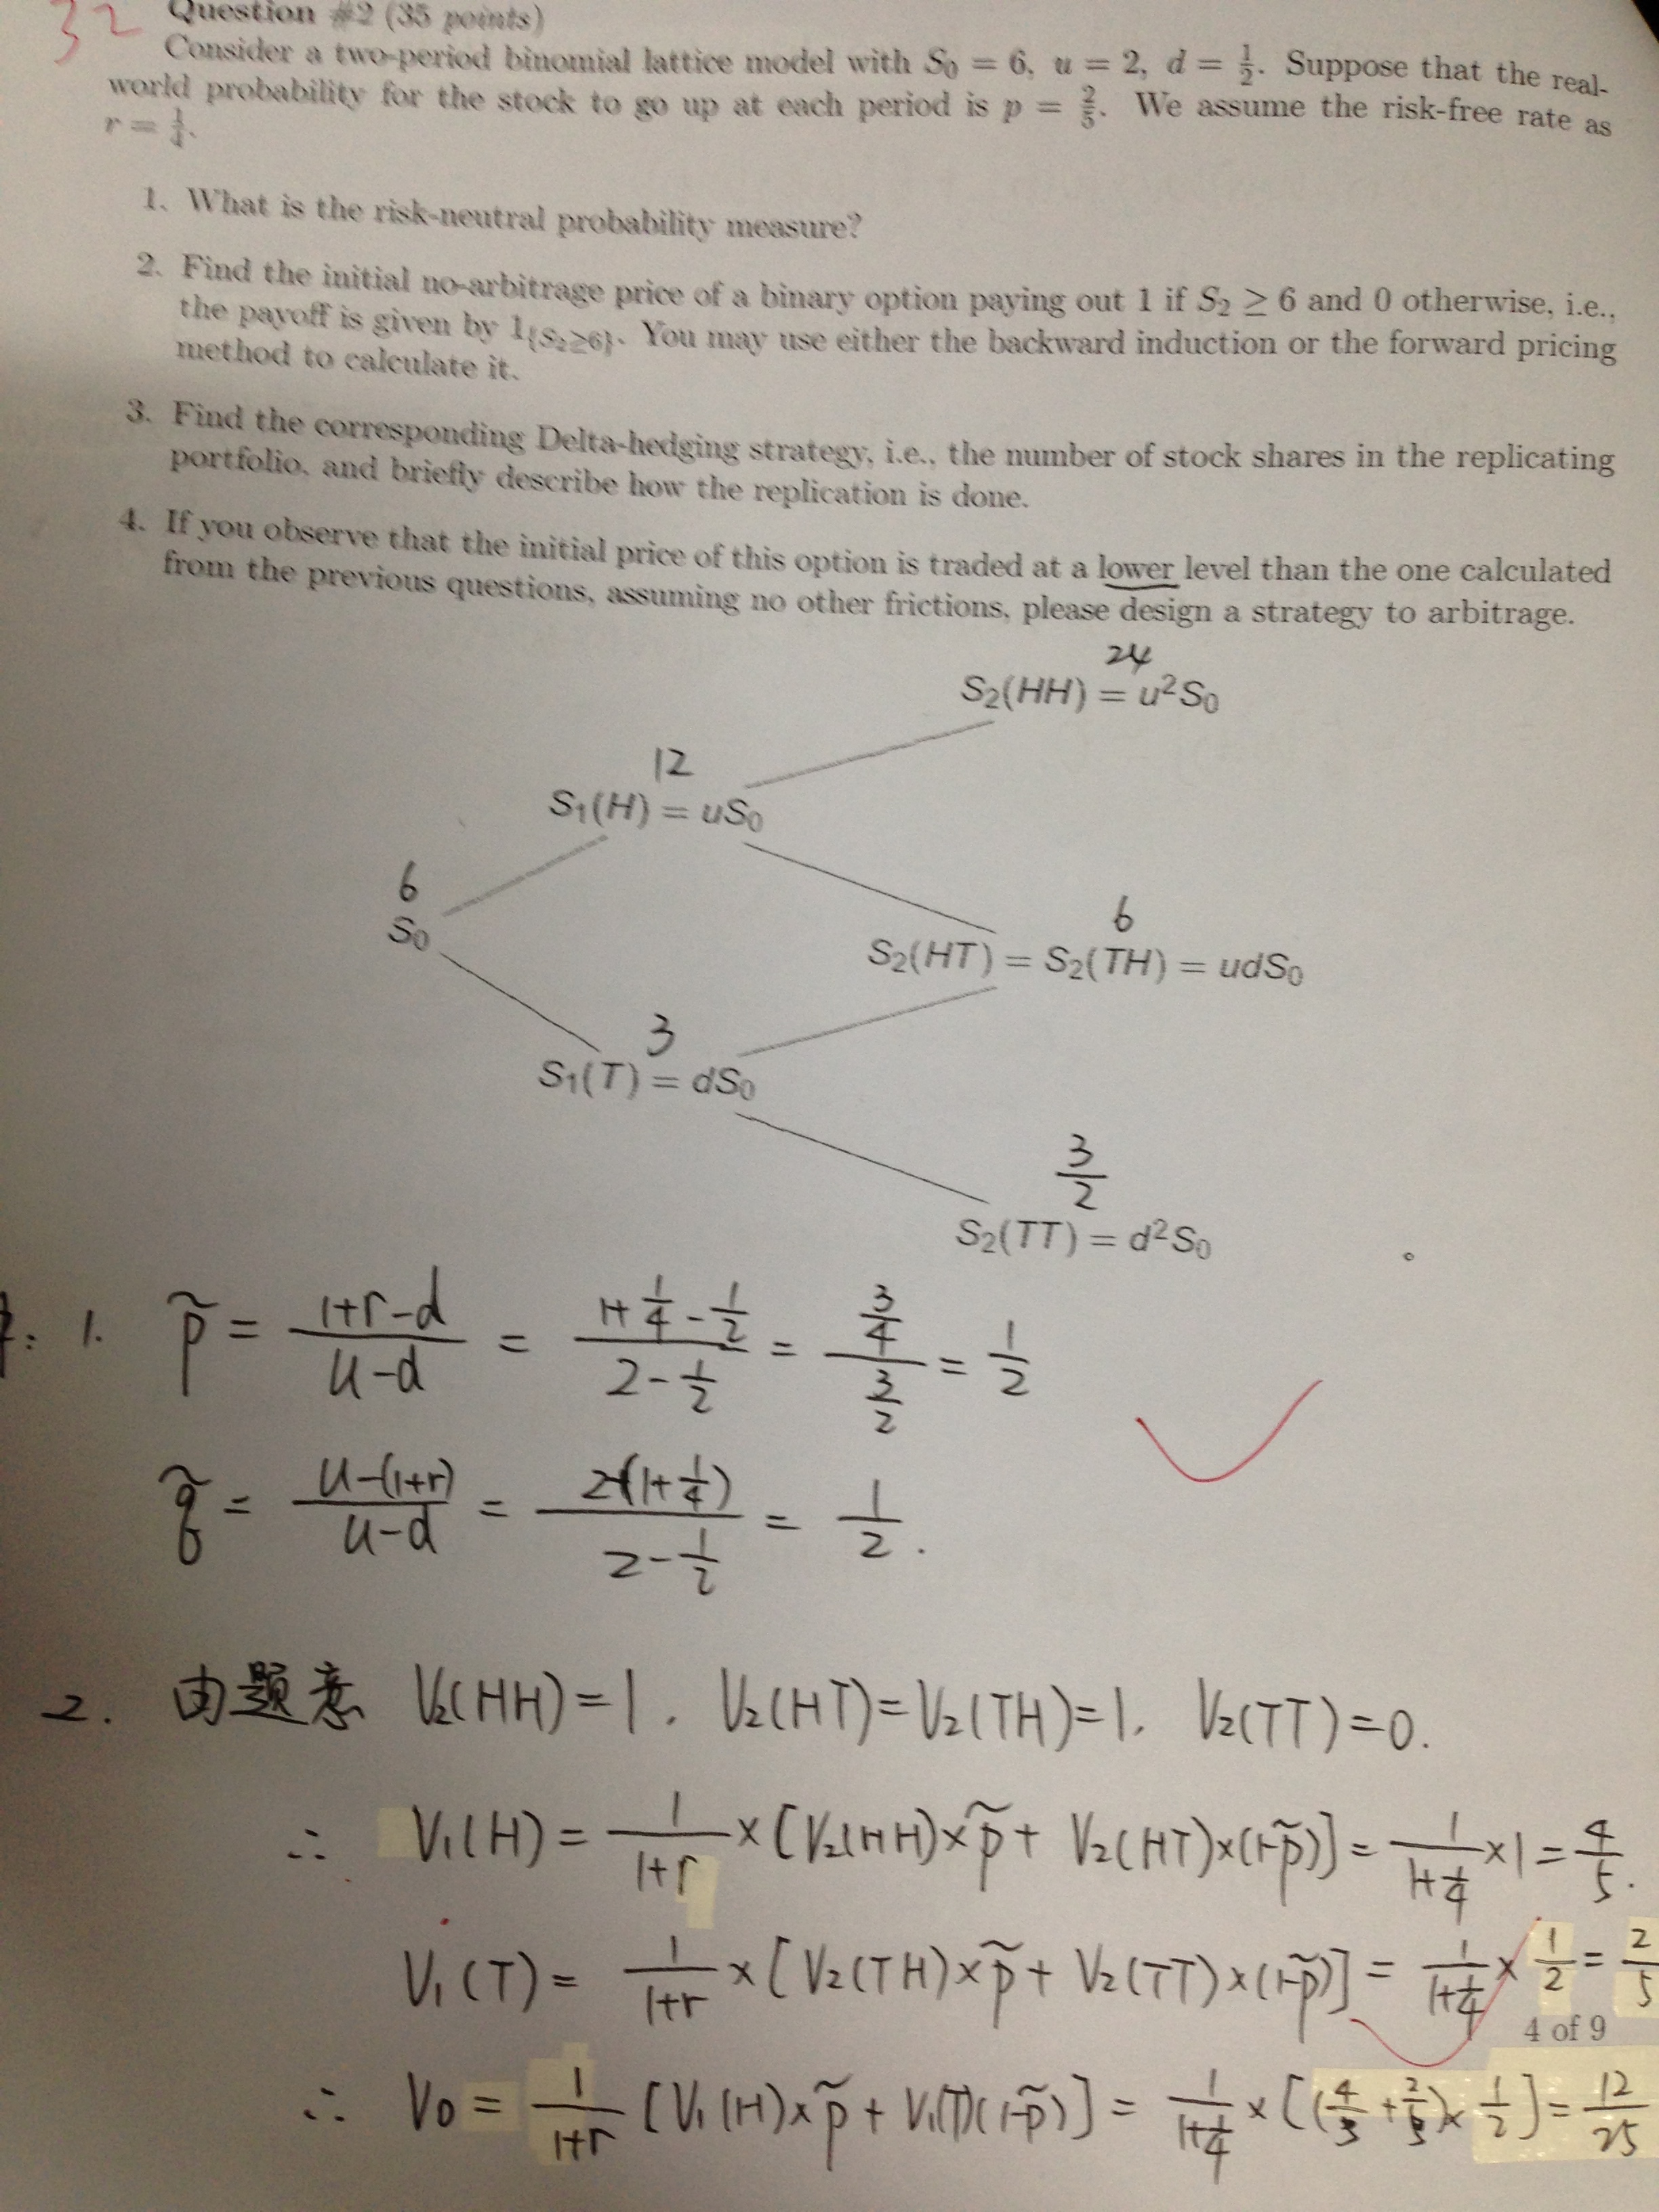 32
Question #2 (35 points)
Consider a two-period binomial lattice model with S₀ = 6, u = 2, d = 1/2. Suppose that the real-
world probability for the stock to go up at each period is p = 2/5. We assume the risk-free rate as
r = 1/4.
1. What is the risk-neutral probability measure?
2. Find the initial no-arbitrage price of a binary option paying out 1 if S₂ ≥ 6 and 0 otherwise, i.e.,
the payoff is given by 1_{S₂≥6}. You may use either the backward induction or the forward pricing
method to calculate it.
3. Find the corresponding Delta-hedging strategy, i.e., the number of stock shares in the replicating
portfolio, and briefly describe how the replication is done.
4. If you observe that the initial price of this option is traded at a lower level than the one calculated
from the previous questions, assuming no other frictions, please design a strategy to arbitrage.
24
S₂(HH) = u²S₀
12
S₁(H) = uS₀
6
S₀
6
S₂(HT) = S₂(TH) = udS₀
3
S₁(T) = dS₀
3/2
S₂(TT) = d²S₀
1. p̃ = (1+r-d)/(u-d) = (1+1/4-1/2)/(2-1/2) = (3/4)/(3/2) = 1/2
q̃ = (u-(1+r))/(u-d) = (2-(1+1/4))/(2-1/2) = 1/2.
2. 由题意 V₂(HH)=1, V₂(HT)=V₂(TH)=1, V₂(TT)=0.
∴ V₁(H) = 1/(1+r) × [V₂(HH)×p̃ + V₂(HT)×(1-p̃)] = 1/(1+1/4) ×1 = 4/5.
V₁(T) = 1/(1+r) × [V₂(TH)×p̃ + V₂(TT)×(1-p̃)] = 1/(1+1/4) × 1/2 = 2/5
4 of 9
∴ V₀ = 1/(1+r) [V₁(H)×p̃ + V₁(T)(1-p̃)] = 1/(1+1/4) × [(4/5+2/5)×1/2] = 12/25